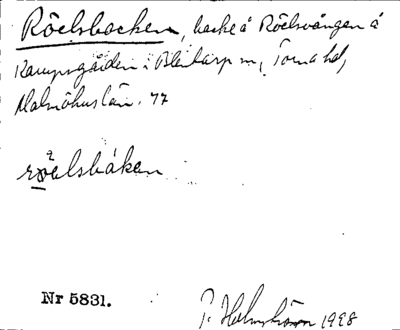 Röelsbacken, backe å Röelsvången å
Kampsgården i Blentarp sn, Torna hd,
Malmöhus län. 77
röelsbáken
Nr 5831.
P. Holmström 1928